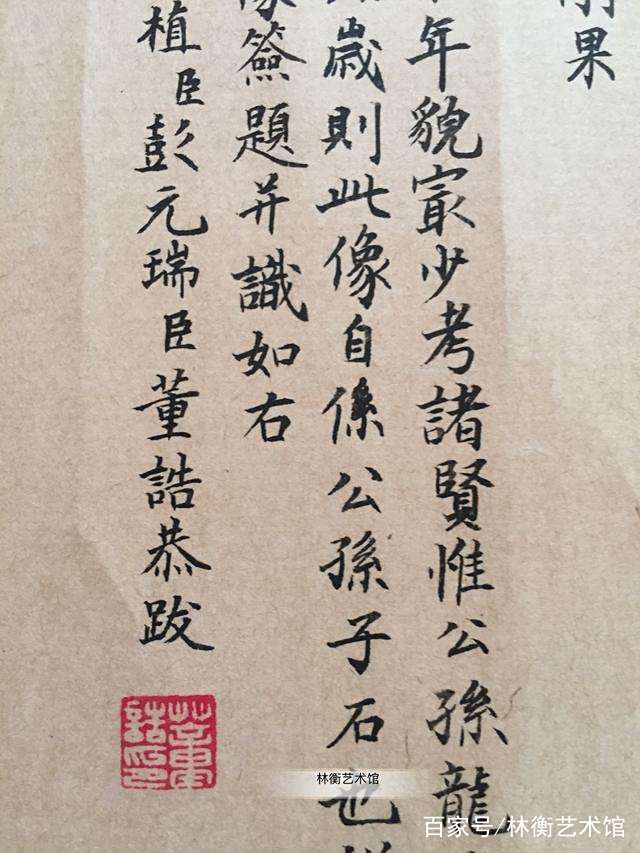 果
年貌冣少考諸賢惟公孫龍
歲則此像自係公孫子石也
簽題并識如右
植臣彭元瑞臣董誥恭跋
董誥
林衡艺术馆
百家号/林衡艺术馆